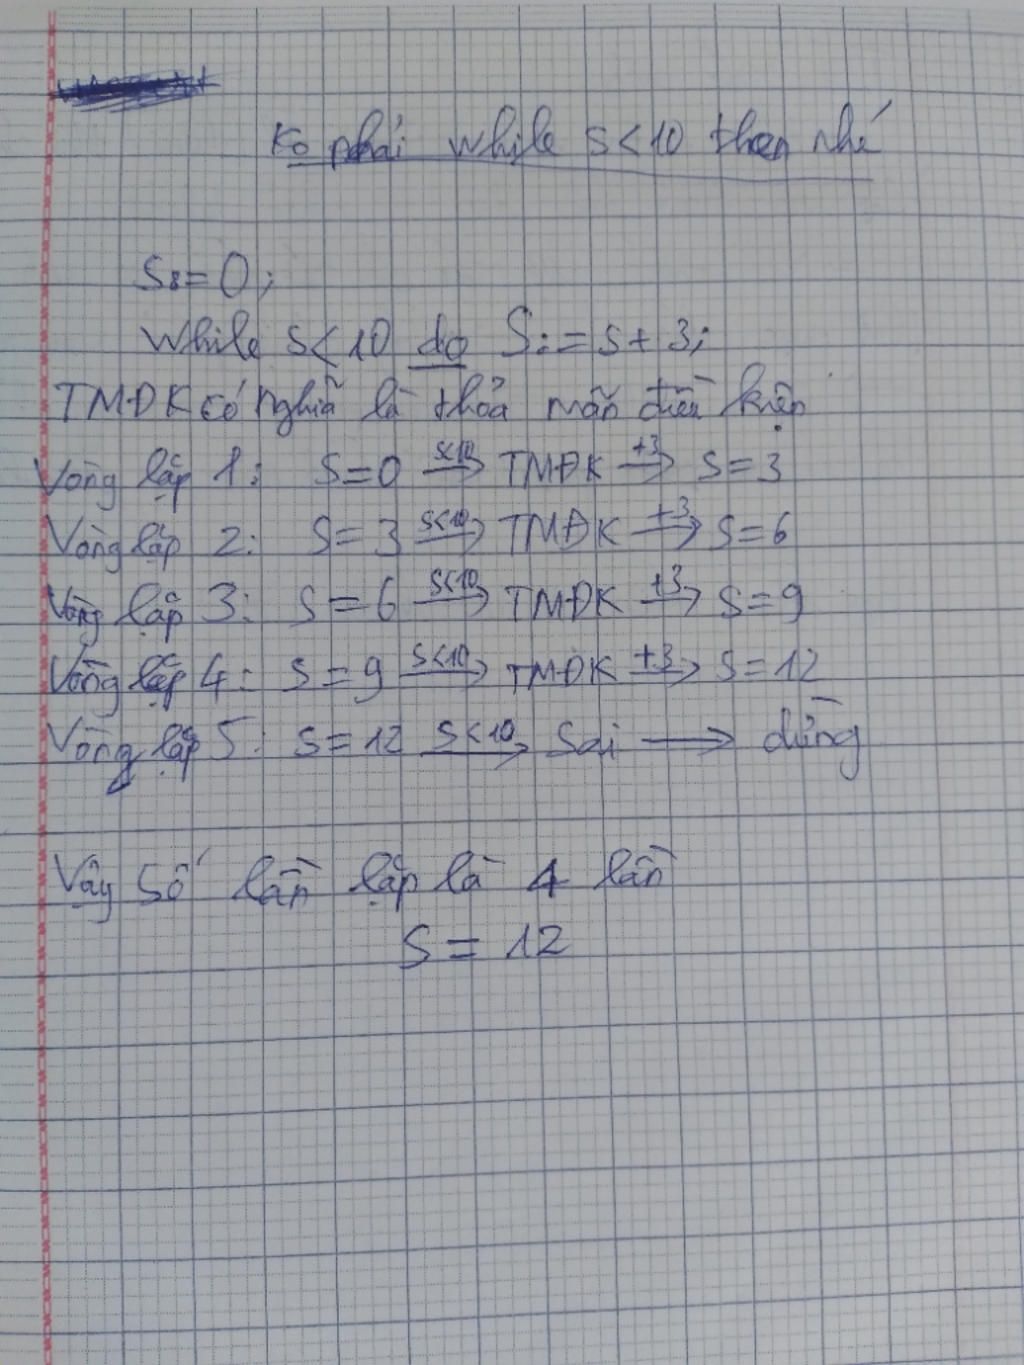 Ko phải while s<10 then nhé
S:=0;
While s<10 do S:=s+3;
TMĐK có nghĩa là thỏa mãn điều kiện
Vòng lặp 1: S=0 s<10→ TMĐK +3→ S=3
Vòng lặp 2: S=3 s<10→ TMĐK +3→ S=6
Vòng lặp 3: S=6 s<10→ TMĐK +3→ S=9
Vòng lặp 4: S=9 s<10→ TMĐK +3→ S=12
Vòng lặp 5: S=12 s<10→ Sai → dừng
Vậy số lần lặp là 4 lần
S=12